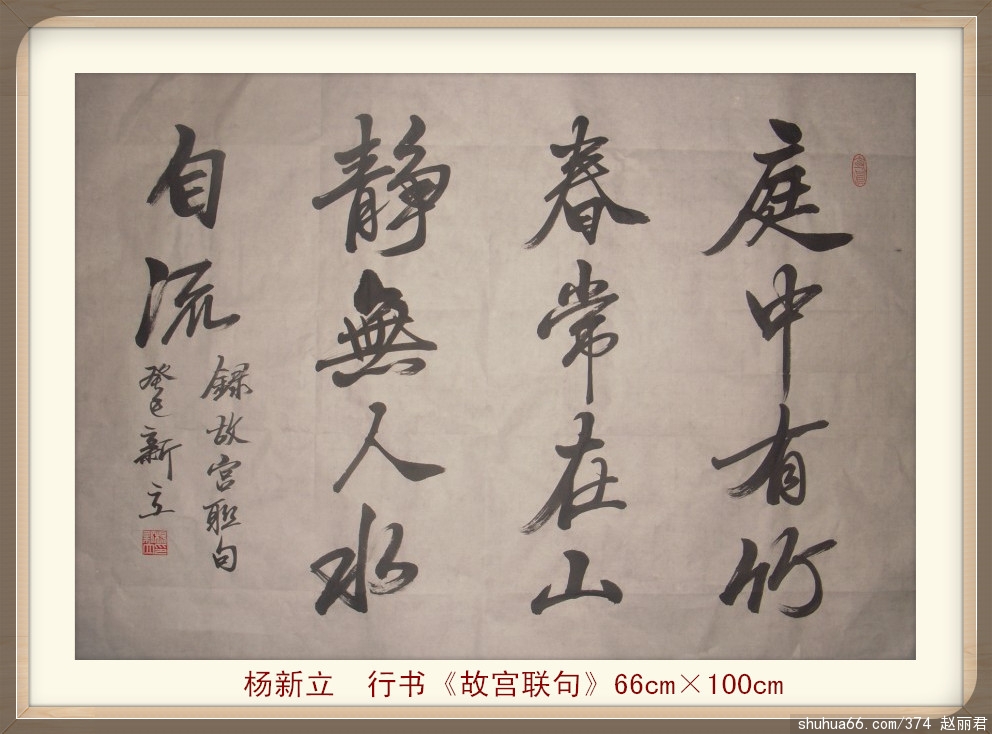 庭中有竹
春常在山
静無人水
自流
録故宫联句
癸巳新立
杨新立 行书《故宫联句》66cm×100cm
shuhua66.com/374 赵丽君